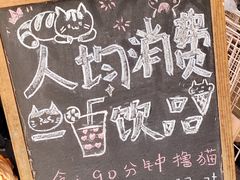 人均消费
一饮品
含 90分钟撸猫